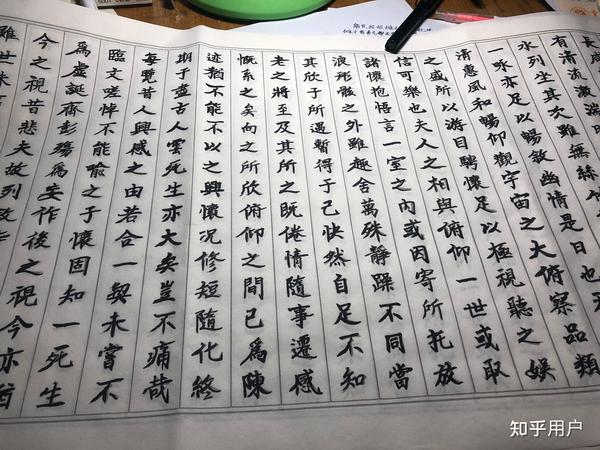 長
有清流激湍
水列坐其次雖無絲
一咏亦足以暢敘幽情是日也
清惠風和暢仰觀宇宙之大俯察品類
之盛所以游目騁懷足以極視聽之娛
信可樂也夫人之相與俯仰一世或取
諸懷抱悟言一室之內或因寄所托放
浪形骸之外雖趣舍萬殊靜躁不同當
其欣于所遇暫得于己快然自足不知
老之將至及其所之既倦情隨事遷感
慨系之矣向之所欣俯仰之間已為陳
迹猶不能不以之興懷况修短隨化終
期于盡古人云死生亦大矣豈不痛哉
每覽昔人興感之由若合一契未嘗不
臨文嗟悼不能喻之于懷固知一死生
為虛誕齊彭殤為妄作後之視今亦猶
今之視昔悲夫故列敘
雖世殊
知乎用户